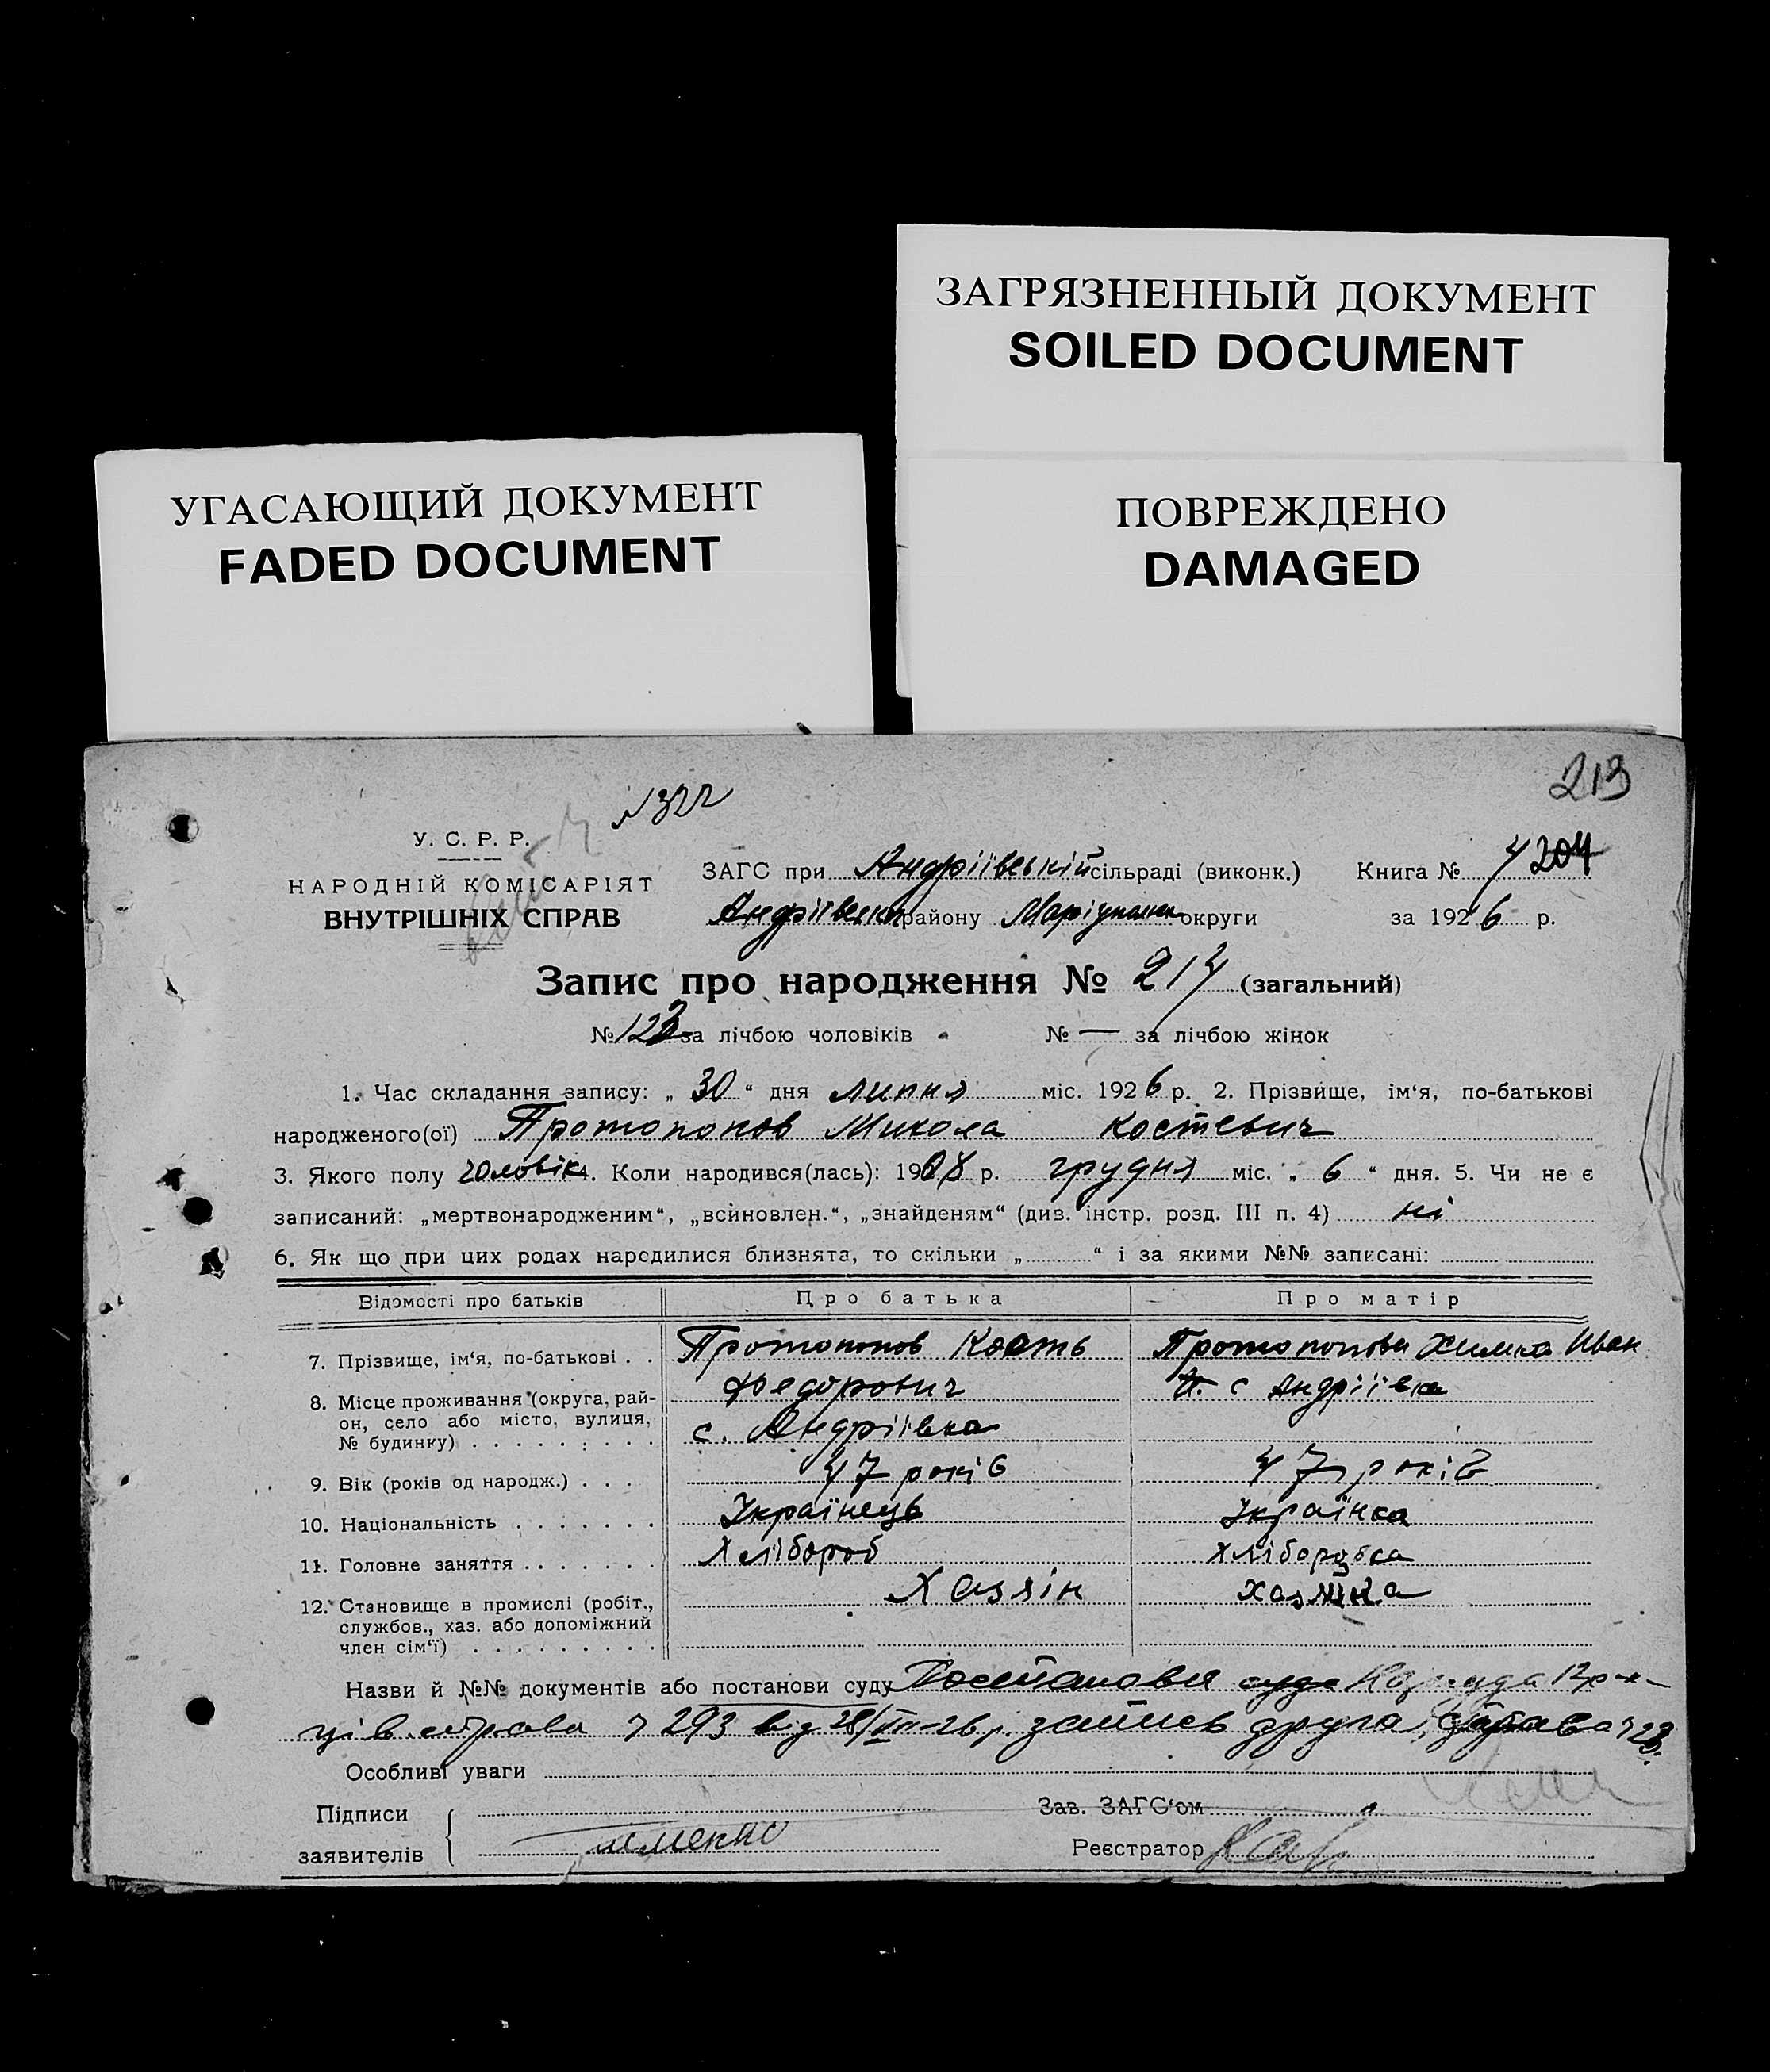 ЗАГРЯЗНЕННЫЙ ДОКУМЕНТ
SOILED DOCUMENT
УГАСАЮЩИЙ ДОКУМЕНТ
FADED DOCUMENT
ПОВРЕЖДЕНО
DAMAGED
213
№322
У. С. Р. Р.
НАРОДНІЙ КОМІСАРІЯТ
ВНУТРІШНІХ СПРАВ
ЗАГС при Андріївській сільраді (виконк.) Книга № 4 204
Андріївськ району Маріупольськ округи за 1926 р.
Запис про народження № 214 (загальний)
№ 123 за лічбою чоловіків № — за лічбою жінок
1. Час складання запису: „ 30 “ дня липня міс. 1926 р. 2. Прізвище, ім‘я, по-батькові
народженого(ої) Протопопов Микола Костевич
3. Якого полу чоловік 4. Коли народився(лась): 1908 р. грудня міс. „ 6 “ дня. 5. Чи не є
записаний: „мертвонародженим“, „всиновлен.“, „знайденям“ (див. інстр. розд. III п. 4) ні
6. Як що при цих родах народилися близнята, то скільки „ “ і за якими №№ записані:
Відомості про батьків Про батька Про матір
7. Прізвище, ім‘я, по-батькові . . Протопопов Кость Протопопова Химка Иван
8. Місце проживання (округа, рай- Федорович с Андріївка
он, село або місто, вулиця, с. Андріївка
№ будинку)
9. Вік (років од народж.) . . . 47 років 47 років
10. Національність Українець Українка
11. Головне заняття Хлібороб хліборобка
12. Становище в промислі (робіт., Хазяін хазяйка
службов., хаз. або допоміжний
член сім‘ї)
Назви й №№ документів або постанови суду Постанова суда
справа 293 від 28/VII-26 р. запись друга, справа 23.
Особливі уваги
Підписи Зав. ЗАГС‘ом
заявителів Реєстратор